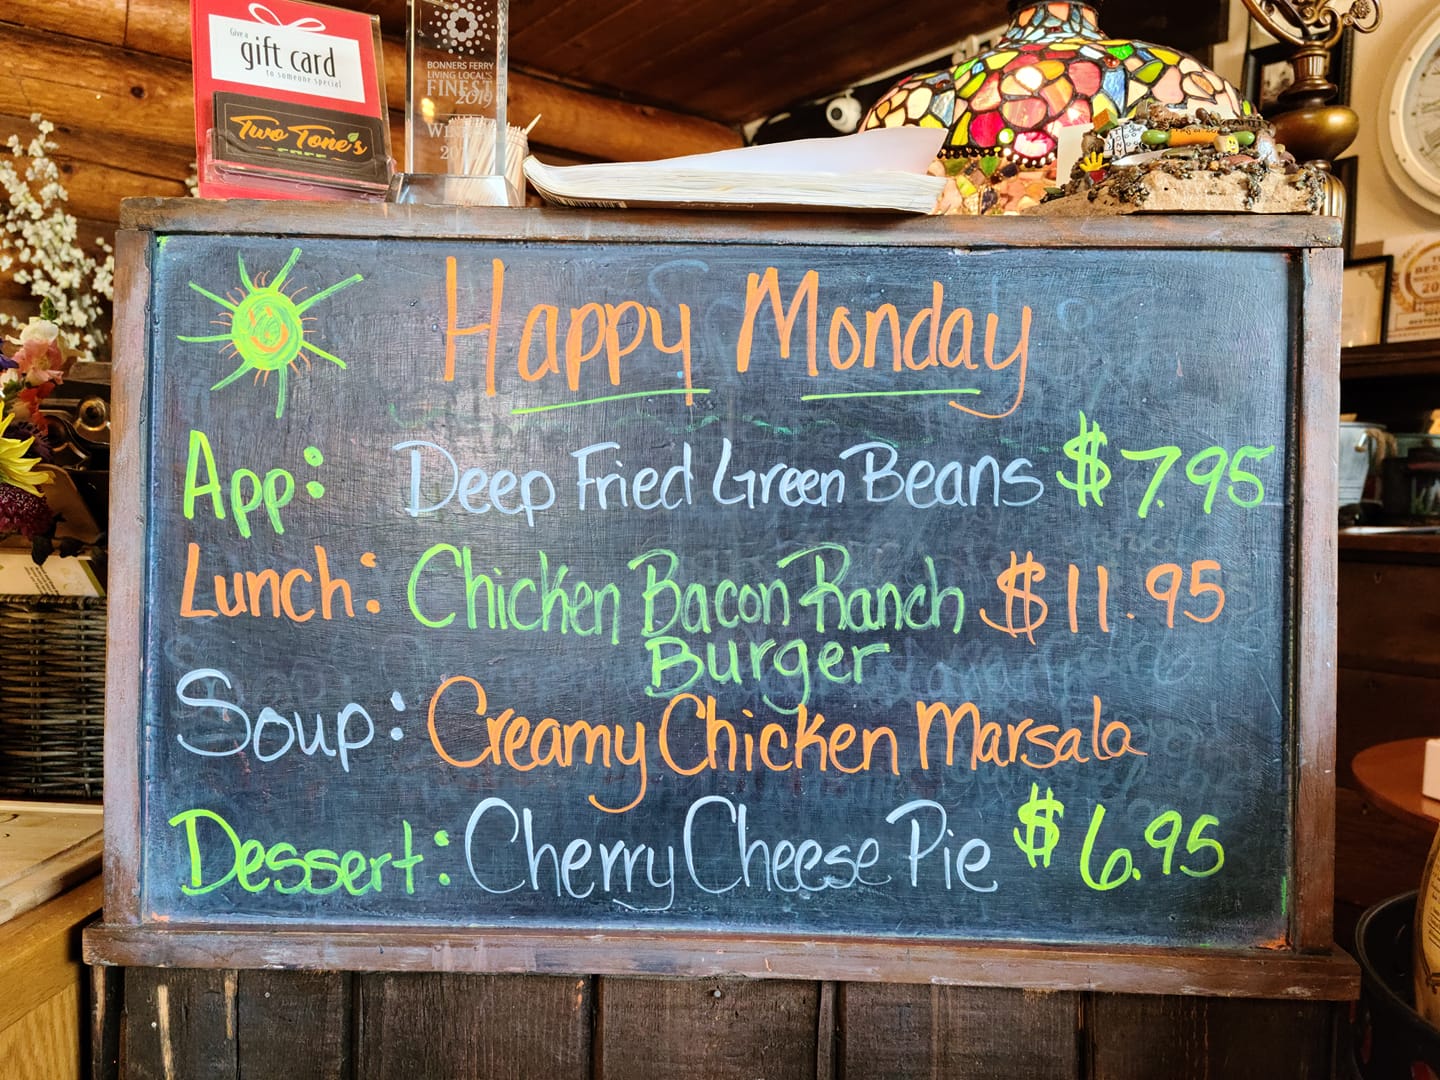 Give a
gift card
to someone special
Two Tone's
CAFE
BONNERS FERRY
LIVING LOCAL'S
FINEST
2019
Happy Monday
App: Deep Fried Green Beans $7.95
Lunch: Chicken Bacon Ranch $11.95
Burger
Soup: Creamy Chicken Marsala
Dessert: Cherry Cheese Pie $6.95